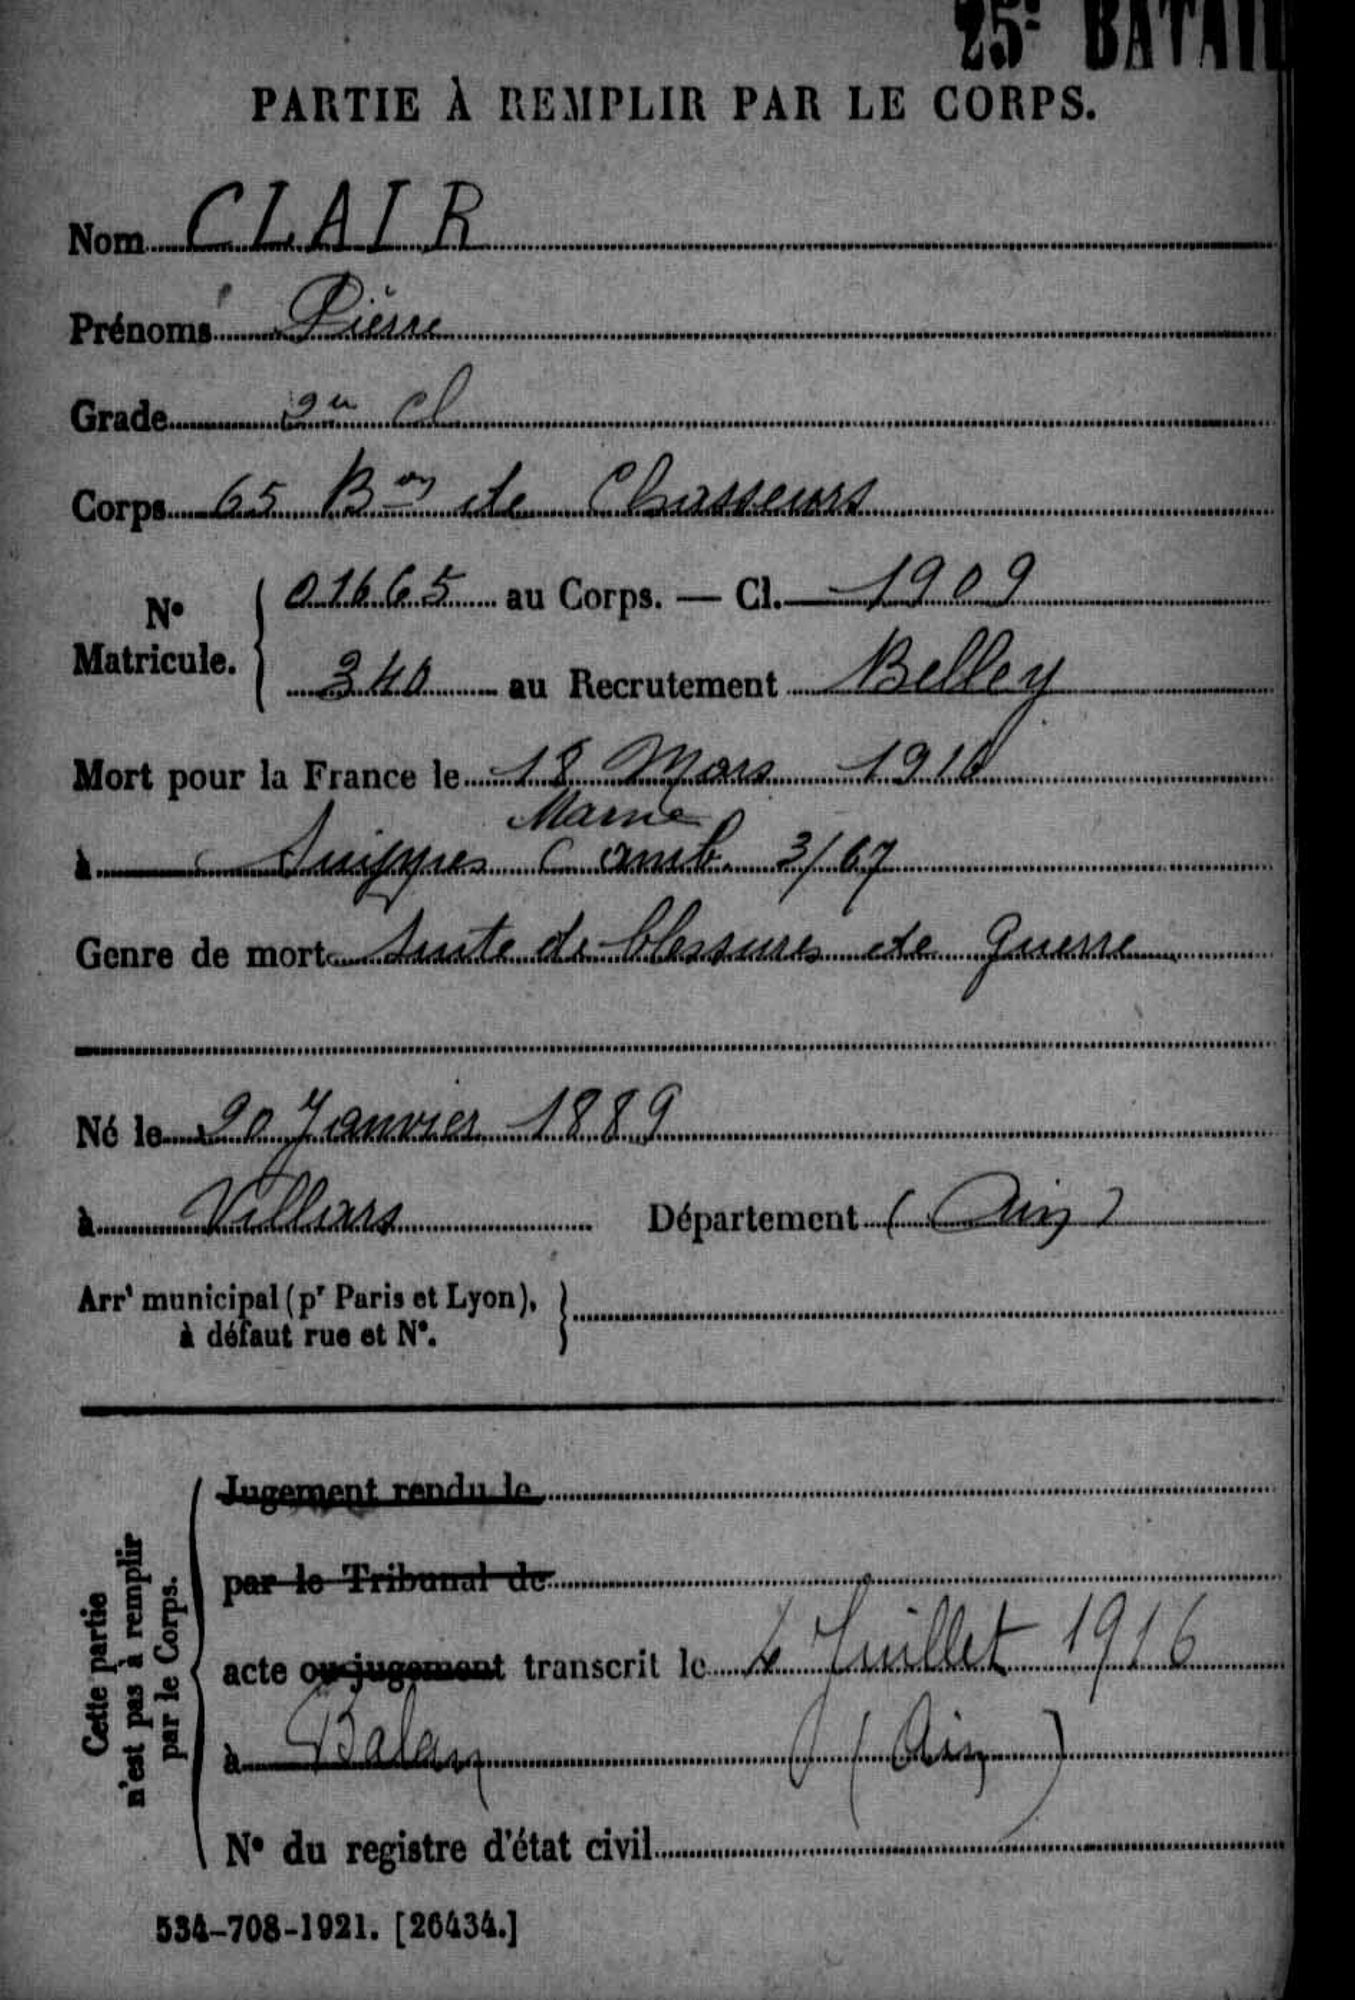 25e BATAI
PARTIE À REMPLIR PAR LE CORPS.
Nom CLAIR
Prénoms Pierre
Grade 2e cl
Corps 65 Bon de Chasseurs
No Matricule. { 01665 au Corps. — Cl. 1909
340 au Recrutement Belley
Mort pour la France le 18 Mars 1916
Marne
à Suippes amb. 3/67
Genre de mort Suite de blessures de Guerre
Né le 20 Janvier 1889
à Villars Département (Ain)
Arrt municipal (pr Paris et Lyon),
à défaut rue et No. }
Cette partie n'est pas à remplir par le Corps.
Jugement rendu le
par le Tribunal de
acte ou jugement transcrit le 4 Juillet 1916
à Balan (Ain)
No du registre d'état civil
534-708-1921. [26434.]